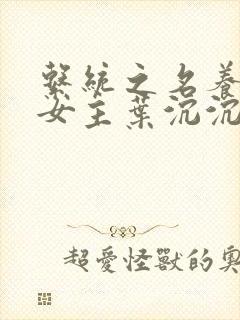 繫統之名養
女主葉沉沉
超愛怪獸的奧